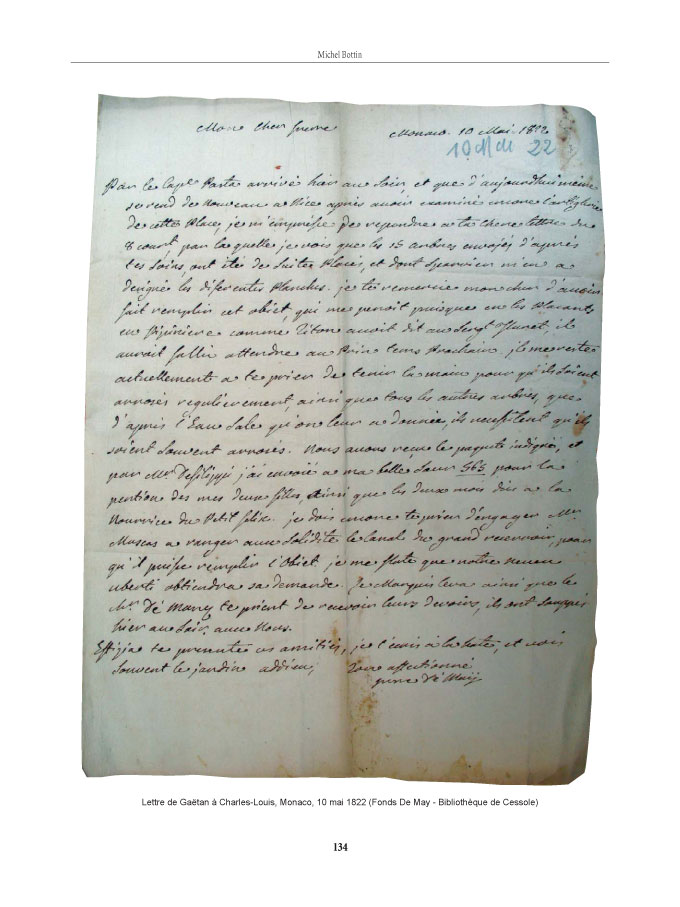 Michel Bottin
Mon cher frere Monaco 10 Mai. 1822
10 Mai 22
Par le Capⁿᵉ Pasta arrivé hier au soir, et que d'aujourdhui même
se rend de nouveau a Nice après avoir examiné encore
de cette Place, je m'impresse de repondre a ta chere lettre du
8 court par laquelle je vois que les 15 arbres envojés d'après
tes soins, ont été de suite Placés, et dont a
designé les diferents Planches. je te remercie mon cher d'avoir
fait remplir cet objet, qui me puisque en les Placants
en Pepiniere comme Titon avoit dit au il
aurait fallu attendre au Prin tems Prochain, il me reste
actuellement a te prier de tenir la main pour qu'ils soient
arrosés regulierement, ainsi que tous les autres arbres, que
d'après l'Eau sale qu'on leur a donnée, ils necessitent qu'ils
soient souvent arrosés. Nous avons reçue le paquete indiqué, et
par Mr. j'ai envoié a ma belle Sœur 565 pour la
pention des mes deux filles ainsi que les deux mois dûs a la
Nourrice du Petit felix. je dois encore te prier d'engager Mr.
a ranger avec solidité le Canal du grand reservoir, pour
qu'il puisse remplir l'objet, je me flate que notre neveu
uberti obtiendra sa demande. Le Marquis ainsi que le
Mr. De te prient de recevoir leurs devoirs, ils ont souppés
hier au soir avec Nous.
te presente ses amitiés, je t'ecris à la hate, et vois
souvent le jardin addieu, Votre affectionné
frere De Maÿ
Lettre de Gaëtan à Charles-Louis, Monaco, 10 mai 1822 (Fonds De May - Bibliothèque de Cessole)
134